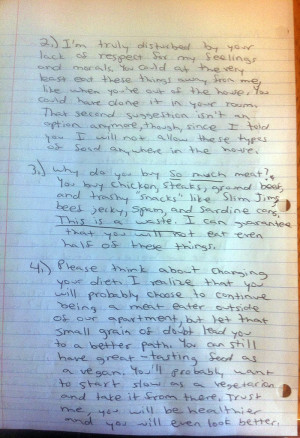 2.) I'm truly disturbed by your
lack of respect for my feelings
and morals. You could at the very
least eat these things away from me,
like when you're out of the house. You
could have done it in your room.
That second suggestion isn't an
option anymore, though, since I told
you I will not allow these types
of food anywhere in the house.
3.) Why do you buy so much meat?
You buy chicken, steaks, ground beef,
and trashy "snacks" like Slim Jims,
beef jerky, spam, and sardine cans.
This is a waste. I can guarantee
that you will not eat even
half of these things.
4.) Please think about changing
your diet. I realize that you
will probably choose to continue
being a meat-eater outside
of our apartment, but let that
small grain of doubt lead you
to a better path. You can still
have great-tasting food as
a vegan. You'll probably want
to start slow as a vegetarian
and take it from there. Trust
me, you will be healthier
and you will even look better.